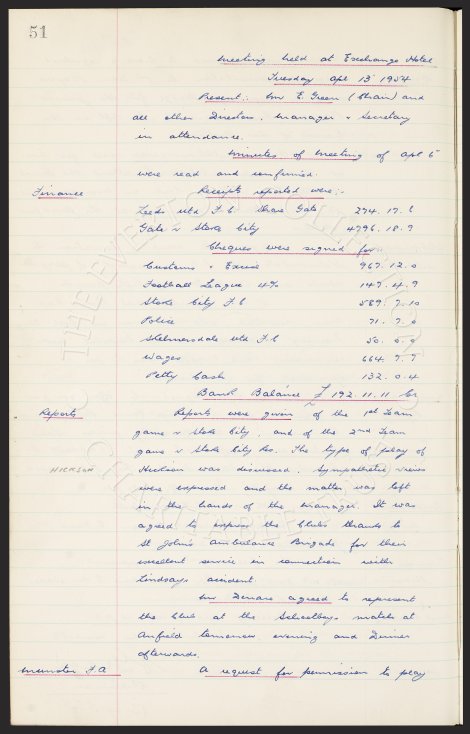 51
Meeting held at Exchange Hotel
Tuesday Apl 13 1954
Present:. Mr E. Green (Chair) and
all other Directors. Manager & Secretary
in attendance.
Minutes of Meeting of Apl 6
were read and confirmed.
Finance Receipts reported were:-
Leeds Utd F.C. Share Gate 274. 17. 6
Gate v Stoke City 4796. 18. 9
Cheques were signed for
Customs & Excise 967. 12. 0
Football League 4% 147. 4. 9
Stoke City F.C 589. 7. 10
Police 71. 7. 0
Skelmersdale Utd F.C 50. 0. 0
Wages 664. 7. 7
Petty Cash 132. 0. 4
Bank Balance £ 192. 11. 11 Cr
Reports Reports were given of the 1st Team
game v Stoke City, and of the 2nd Team
game v Stoke City Res. The type of play of
HICKSON Hickson was discussed. Sympathetic views
were expressed and the matter was left
in the hands of the manager. It was
agreed to express the Clubs thanks to
St John's Ambulance Brigade for their
excellent service in connection with
Lindsays accident.
Mr Seare agreed to represent
the Club at the Schoolboys match at
Anfield tomorrow evening and Dinner
afterwards.
Munster F.A A request for permission to play
THE EVERTON COLLECTION
CHARITABLE TRUST